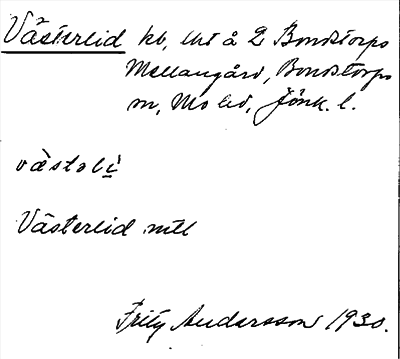 Västerlid kb, lht å 2 Bondstorps
Mellangård, Bondstorps
sn, Mo hd, Jönk. l.
västəli
Västerlid mtl
Fritz Andersson 1930.